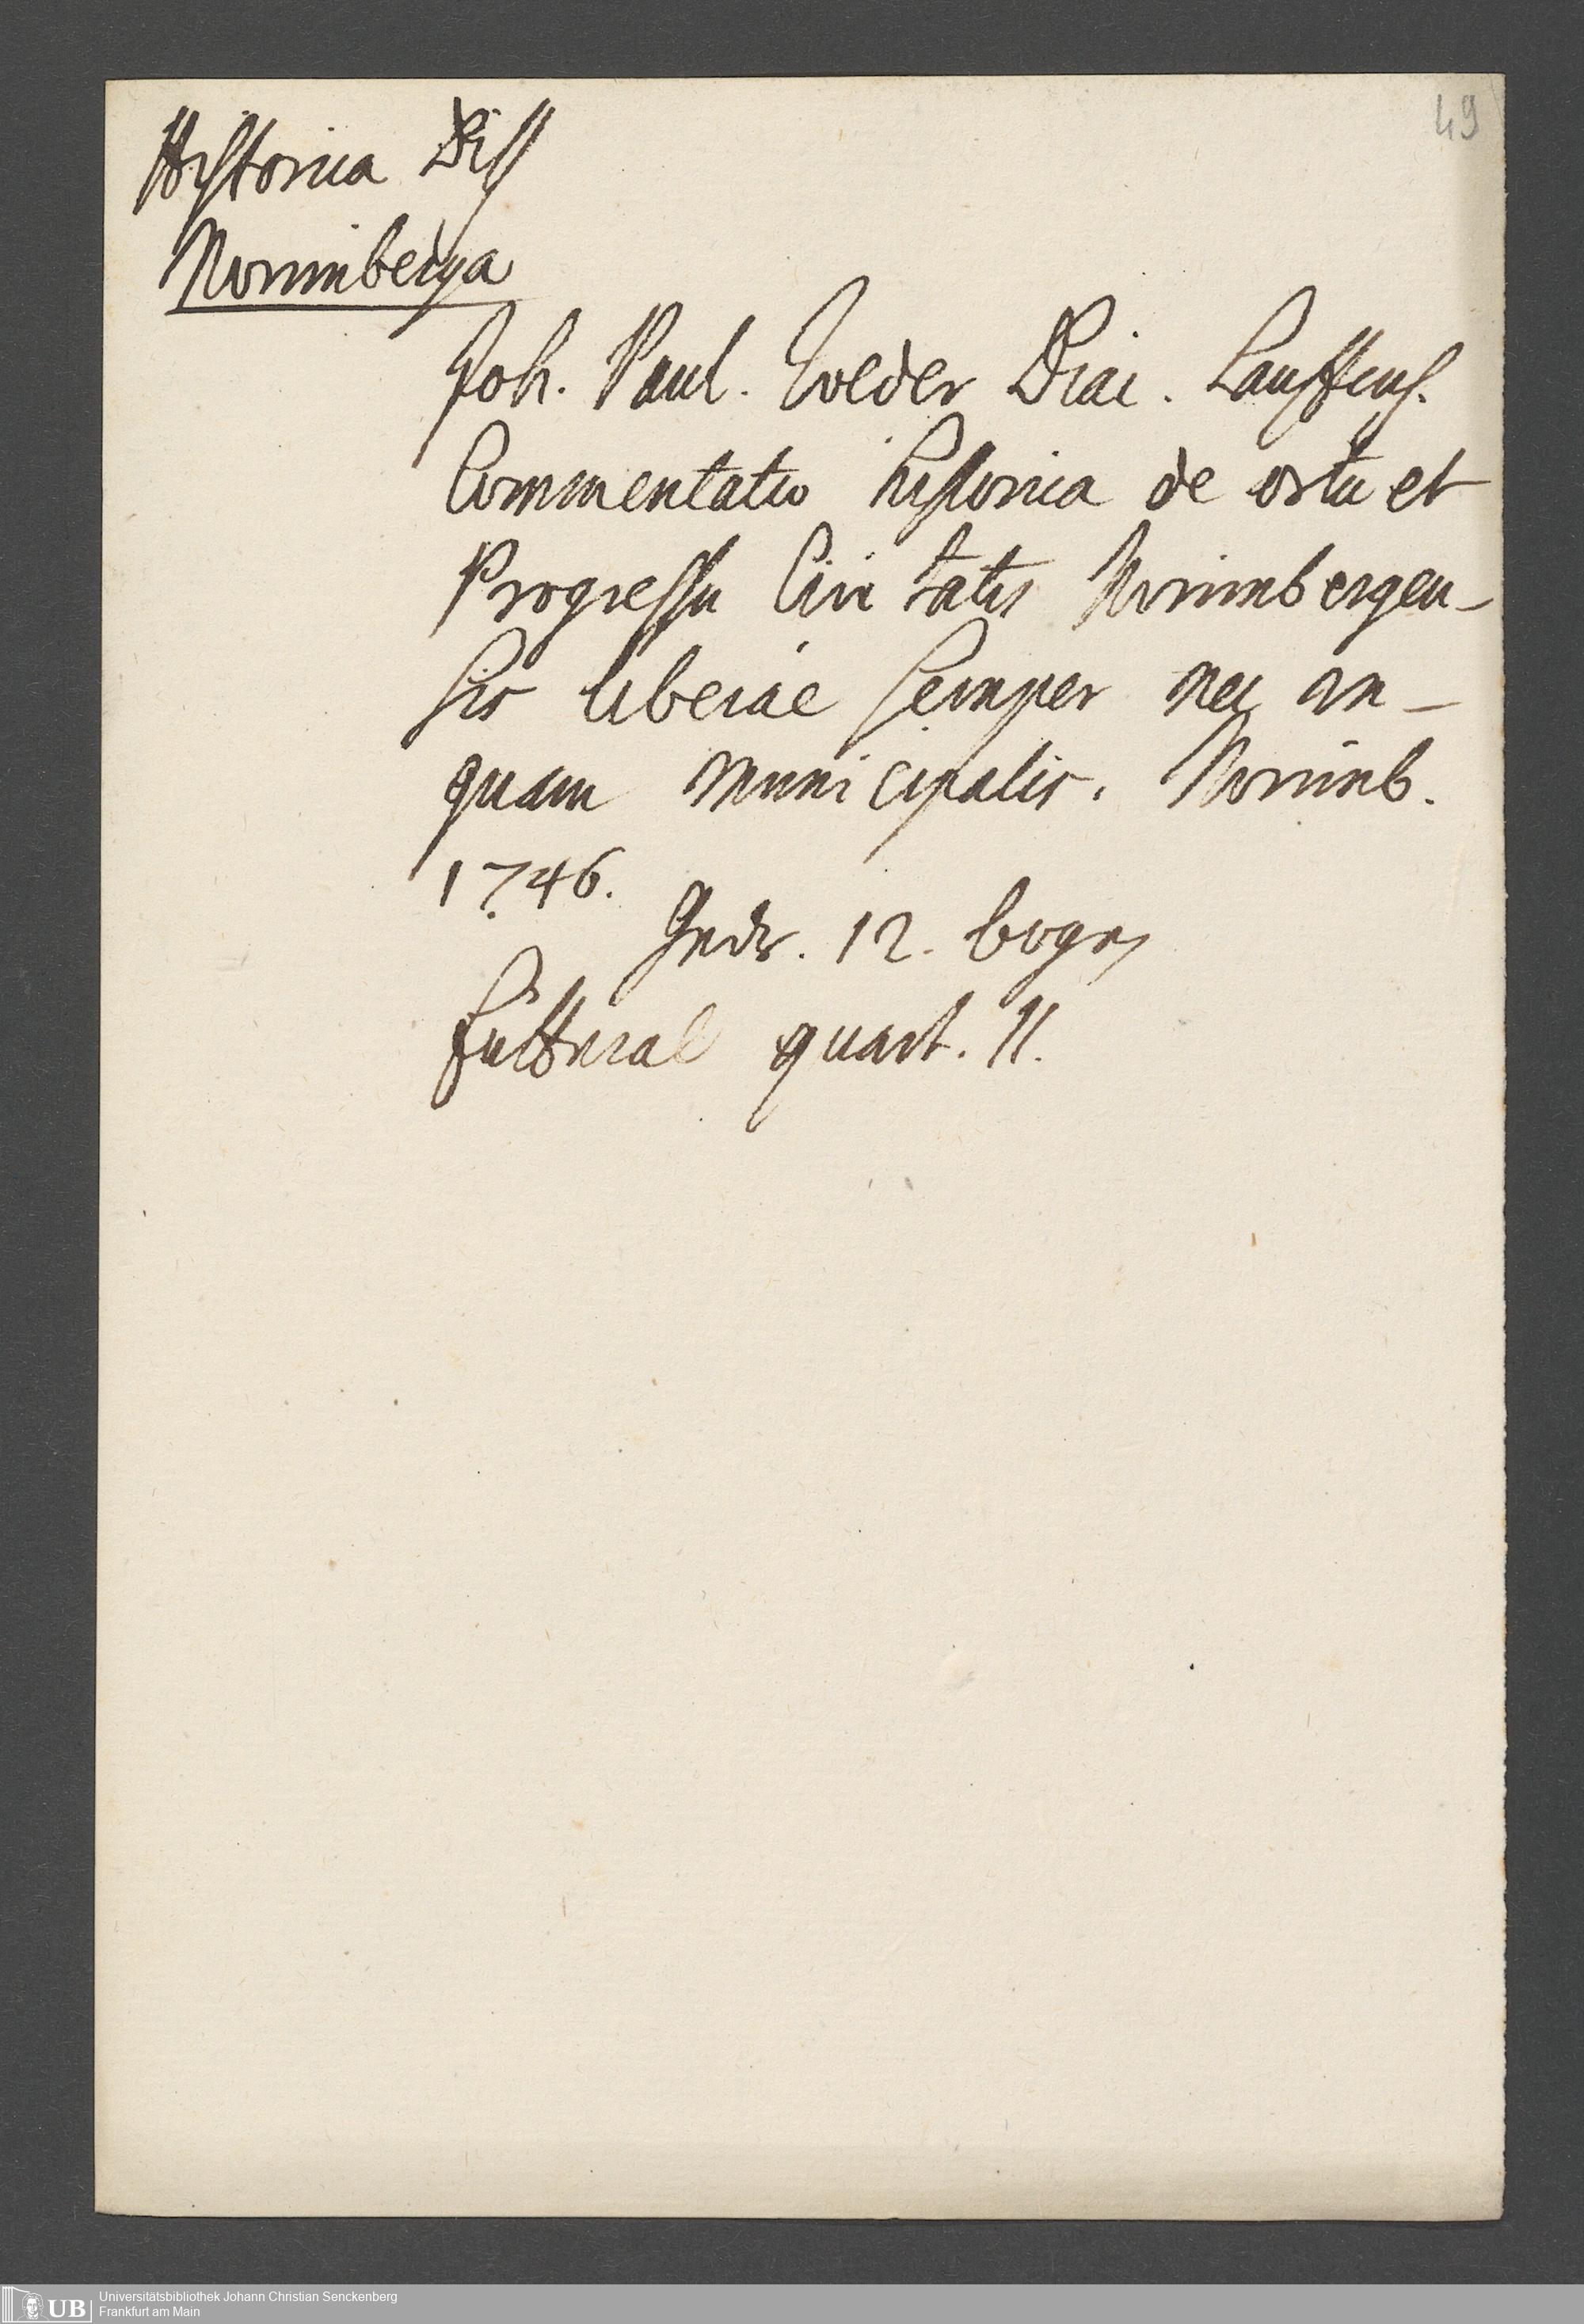 49
Historica Diss
Norimberga
Joh. Paul. Roeder Diac. Lauffens.
Commentatio historica de ortu et
Progressu Civitatis Norimbergen-
sis liberae semper nec un-
quam municipalis. Norimb.
1746.
12. bogen
Futteral quart. 11.
UB Universitätsbibliothek Johann Christian Senckenberg
Frankfurt am Main